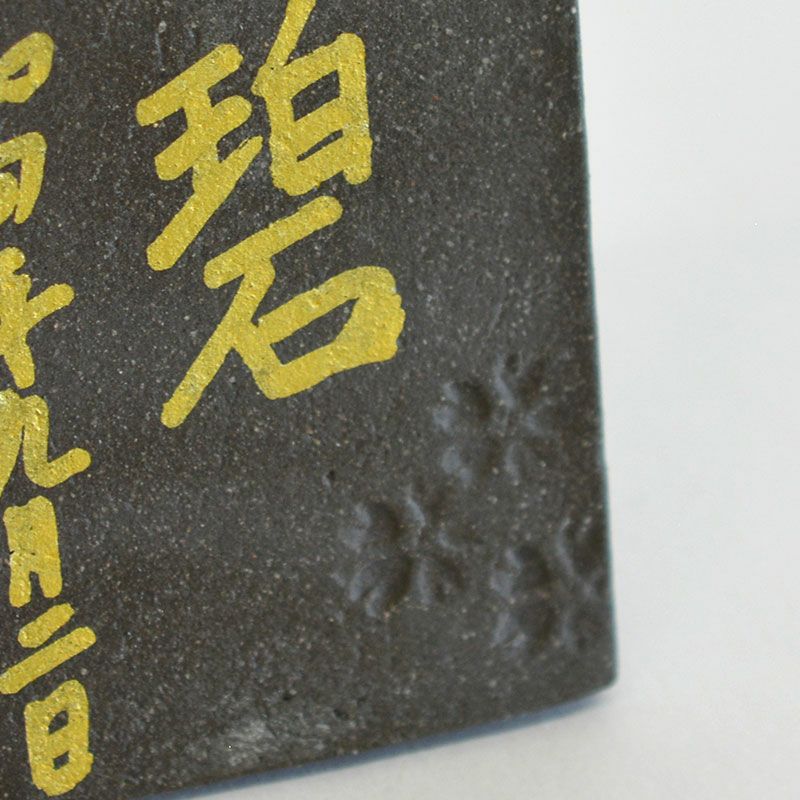 碧
年九月二日